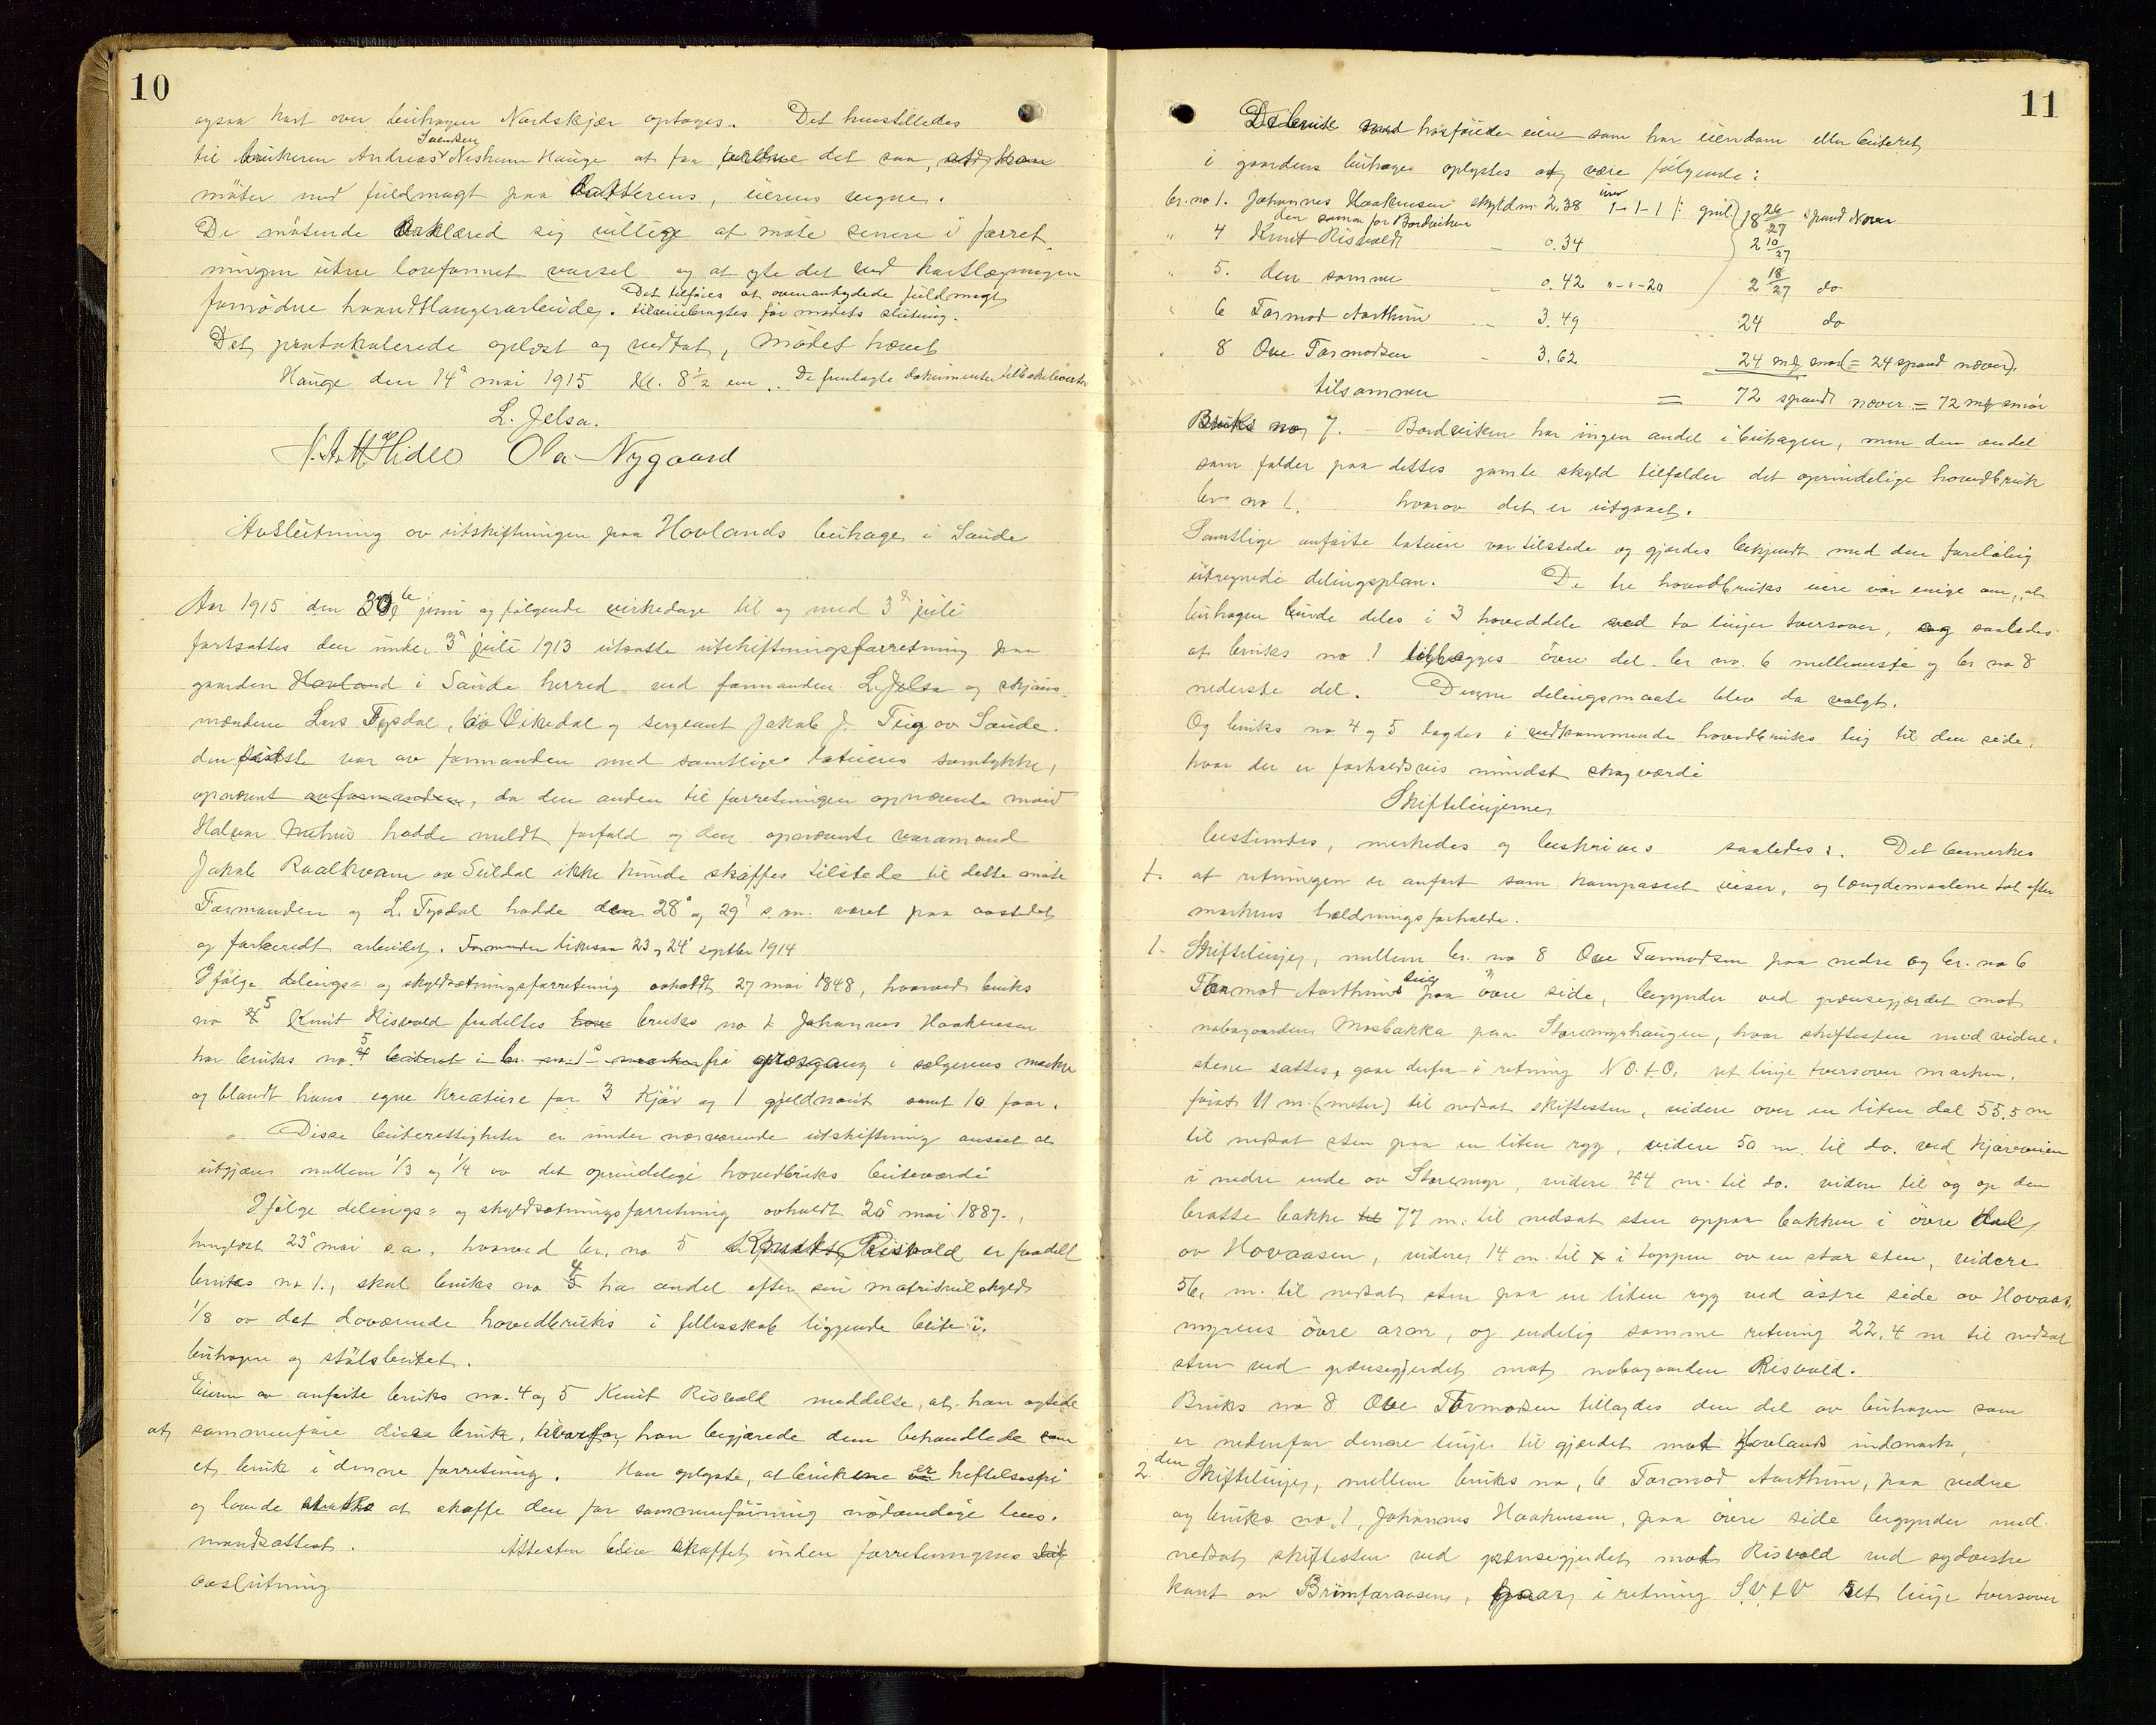 10
ogsaa kart over beithagen Nordskjær optages. Det henstilledes
Svendsen
til brukeren Andreas Neshum Hauge at faa det saa,
møter med fuldmagt paa datterens, eierens vegne.
De møtende erklæred sig villige at møte senere i forret
ningen uten lovformet varsel og at yte det ved kartlægningen
fornødne haandtlangerarbeide. Det tilføies at ovenantydede fuldmagt
tilveiebragtes før møtets slutning.
Det protokolerede oplæst og vedtat, Mødet hævet
Hauge den 14de mai 1915 kl. 8½ em. De fremlagte dokumenter tilbakeleverte
L. Jelsa.
Ola Nygaard
Avslutning av utskiftningen paa Hovlands beithage i Saude
Aar 1915 den 30te juni og følgende virkedage til og med 3de juli
fortsattes den under 3de juli 1913 utsatte utskiftningsforretning paa
gaarden Hovland i Saude herred ved formanden L. Jelsa og skjøns-
mændene Lars Tysdal, av Vikedal og sergeant Jakob J. Teig av Saude.
den sidste var av formanden med samtlige lotteieres samtykke,
opnævnt av formanden, da den anden til forretningen opnævnte mand
Halvor hadde meldt forfald og den opnævnte varamand
Jakob Raalkvam av Suldal ikke kunde skaffes tilstede til dette møte
Formanden og L. Tysdal hadde den 28de og 29de s.m. været paa aastedet
og forberedt arbeidet. Formanden likesaa 23 og 24de septbr 1914
Ifølge delings- og skyldsætningsforretning avholdt 27 mai 1848, hvorved bruks
5
no 4 Knut Risvold fradeltes bruks no 1 Johannes Haakensen
5
har bruks no 4 beiteret i br. no 1s marker fri græsgang i sælgerens marker
og blandt hans egne kreature for 3 kjør og 1 gjeldnaut samt 10 faar.
Disse beiterettigheter er under nærværende utskiftning anseet at
utgjøre mellem 1/3 og 1/4 av det oprindelige hovedbruks beiteværdi
Ifølge delings- og skyldsætningsforretning avholdt 20de mai 1887,
tinglæst 23de mai s.a., hvorved br. no 5 Knut Risvold er fradelt
4
bruks no 1., skal bruks no 5 ha andel efter sin matrikulskyld
1/8 av det daværende hovedbruks i fellesskab liggende beite i
beithagen og stølsbeitet.
Eieren av anførte bruks no. 4 og 5 Knut Risvold meddelte, at han agtede
at sammenføie disse bruk, hvorfor han begjærede dem behandlede som
et bruk i denne forretning. Han oplyste, at brukene er heftelsesfri
og lovede straks at skaffe den for sammenføining nødvendige lens-
mandsattest. Attesten blev skaffet inden forretningens
avslutning
11
De bruk med hosføiede eiere som har eiendom eller beiteret
i gaardens beithage oplystes at være følgende:
br. no 1. Johannes Haakensen skyldm. 2.38 1-1-1 (: gml.) 18 26/27 spand Næver
den samme for Bordviken
" 4 Knut Risvold - 0.34 2 10/27
" 5. den samme - 0.42 "-"-20 2 18/27 do
" 6 Tormod Aarthun - 3.49 24 do
" 8 Ove Tormodsen - 3.62 24 mk smør (= 24 spand næver).
tilsammen = 72 spand næver = 72 mk smør
Bruks no 7. - Bordviken har ingen andel i beithagen, men den andel
som falder paa dettes gamle skyld tilfalder det oprindelige hovedbruk
br. no 1. hvorav det er utgaaet.
Samtlige anførte loteiere var tilstede og gjordes bekjendt med den foreløbig
utregnede delingsplan. De tre hovedbruks eiere var enige om, at
beithagen burde deles i 3 hoveddele ved to linjer tversover, og saaledes
at bruks no 1 tillægges øvre del. br no. 6 mellemste og br no 8
nederste del. Denne delingsmaate blev da valgt.
Og bruks no 4 og 5 lagdes i vedkommende hovedbruks teig til den side,
hvor der er forholdsvis mindst skogværdi
Skiftelinjerne
bestemtes, merkedes og beskrives saaledes: Det bemerkes
1. at retningen er anført som kompasset viser, og længdemaalene tat efter
markens hældningsforholde.
1. Skiftelinjen, mellem br. no 8 Ove Tormodsen paa nedre og br. no 6
teig
Tormod Aarthuns paa øvre side, begynder ved grænsegjærdet mot
nabogaarden Mosbakka paa Storemyrhaugen, hvor skiftesten med vidne-
stene sattes, gaar derfra i retning N.O.t.O. ret linje tversover marken.
først 11 m. (meter) til nedsat skiftesten, videre over en liten dal 55,5 m
til nedsat sten paa en liten ryg, videre 50 m. til do. ved kjørevien
i nedre ende av Storemyr, videre 44 m. til do. videre til og op den
bratte bakke til 77 m. til nedsat sten oppaa bakken i øvre del
av Hovaasen, videre 14 m. til x i toppen av en stor sten, videre
56, m. til nedsat sten paa en liten ryg ved østre side av Hovaas
myrens øvre arm, og endelig samme retning 22,4 m til nedsat
sten ved grænsegjerdet mot nabogaarden Risvold.
Bruks no 8 Ove Tormodsen tillagdes den del av beithagen som
er nedenfor denne linje til gjærdet mot Hovlands indmark,
2. den Skiftelinje, mellem bruks no, 6 Tormod Aarthun, paa nedre
og bruks no. 1, Johannes Haakensen, paa øvre side begynder ved
nedsat skiftesten ved grænsegjerdet mot Risvold ved sydøstre
kant av Brimfaraasen, gaar i retning S.V.t.V ret linje tversover